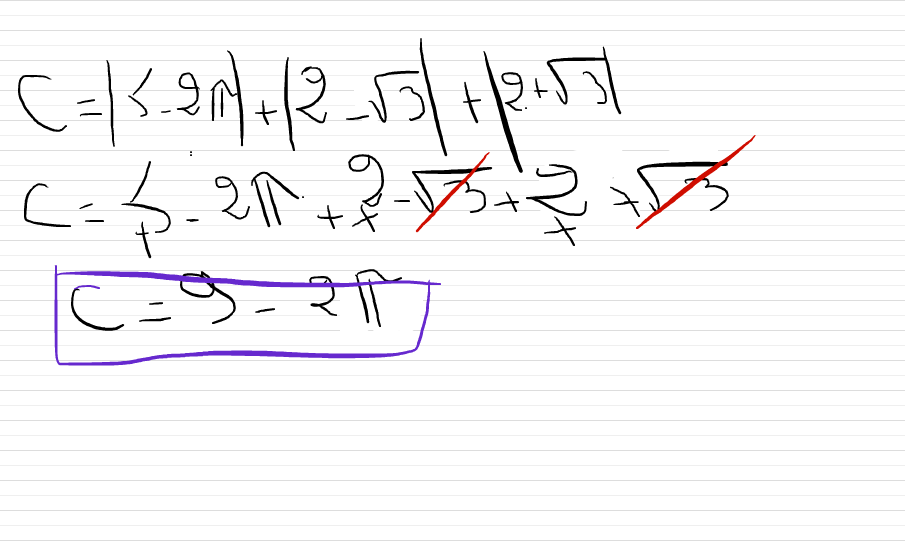 C = |5 - 2π| + |2 - √3| + |2 + √3|
C = 5 - 2π + 2 - √3 + 2 + √3
C = 9 - 2π